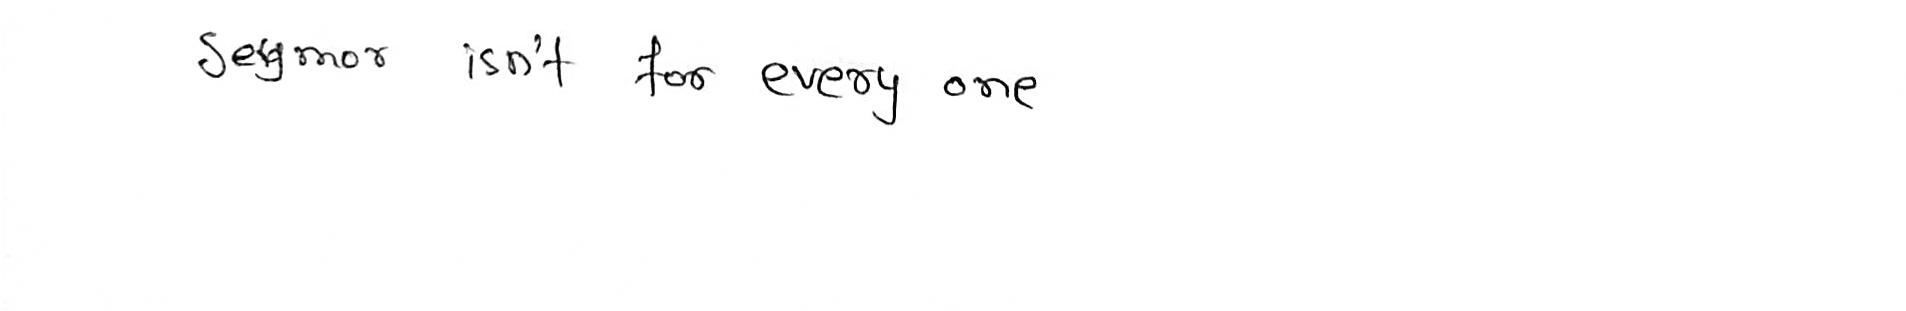 Seymor isn't for every one